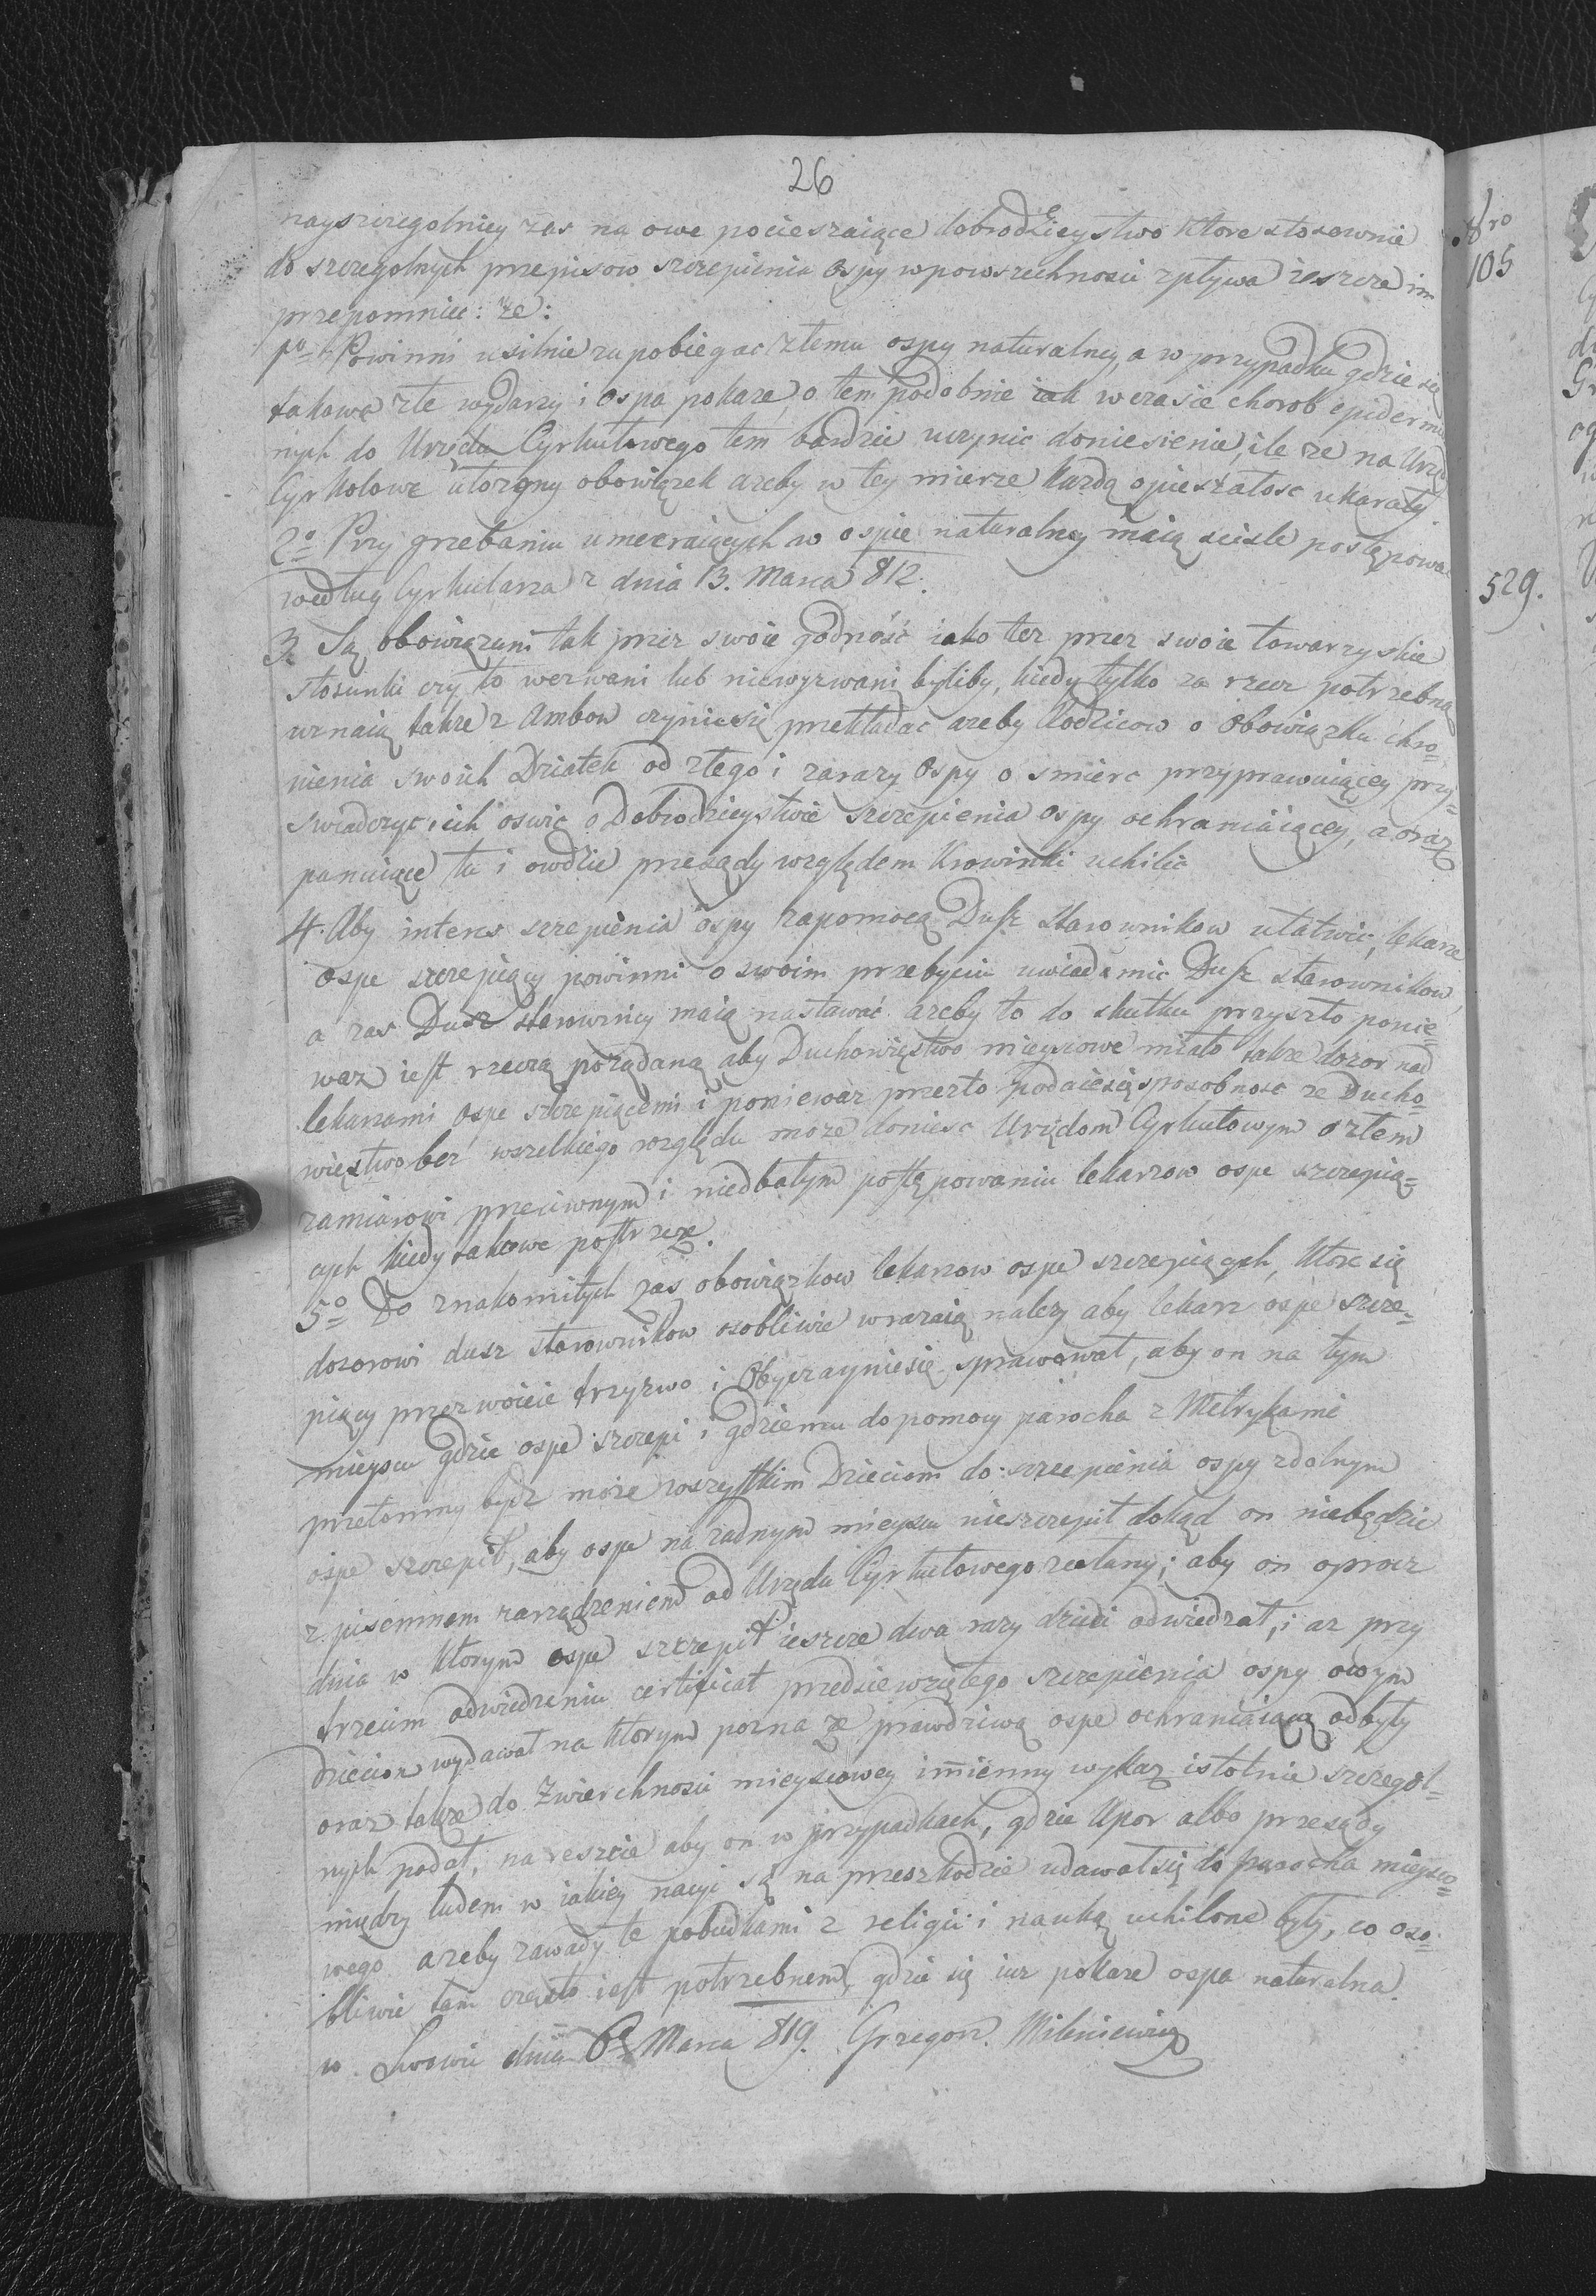 26
nayszczegolniey zas na owe pocieszaiące dobrodzieystwo które stosownie
do szczegolnych przepisow szczepienia Ospy w powszechnosci zpływa ieszcze im
przepomniec: że:
po Powinni usilnie zapobiegac złemu ospy naturalney, a w przypadku gdzie się
takowe złe wydarzy i ospa pokaze, o tem podobnie iak w czasie chorob epidermi
nych do Urzędu Cyrkułowego tem bardziei uczynic doniesienie, ile ze na Urzę
Cyrkołowe włozony obowiązek azeby w tey mierze każdą opieszałosc ukarały
2o Przy grzebaniu umieraiących w ospie naturalney maią scisle postępowac
według Cyrkularza z dnia 13. Marca 812.
3. Są obowiązani tak przez swoie godność iako tez przez swoie towarzyskie
stosunki czy to wezwani lub niewyzwani byliby, kiedy tylko za rzecz potrzebną
uznaią takze z Ambon czyniesię przekładac azeby Rodzicow o Obowiązku chro=
nienia swoich Dziatek od złego i zarazy Ospy o smierc przyprawuiącey prze=
swiadczyc, ich oswic o Dobrodzieystwie szczepienia ospy ochraniaiącey, a oraz
panuiące tu i owdzie przesądy względem Krowinki uchilic
4. Aby interes szczepienia ospy zapomocą Dusz starownikow ułatwic, lekarze
ospe szczepiący powinni o swoim przebyciu uwiadomic Dusz starownikow,
a zas Dusz starownicy maią nastawać azeby to do skutku przyszło ponie=
waz iest rzeczą porządaną aby Duchowięstwo mieyscowe miało takze dozor nad
lekarzami ospe szczepiącemi i ponieważ przezto podaiesię sposobnosc ze Ducho=
więstwo bez wszelkiego względu moze doniesc Urzędom Cyrkułowym o złem
zamiarowi przeciwnym i niedbałym postępowaniu lekarzow ospe szczepią=
cych kiedy takowe postrzeze.
5o Do znakomitych zaś obowiązkow lekarzow ospe szczepiących, które się
dozorowi dusz starownikow osobliwie wrazaią nalezy aby lekarz ospe szcze=
piący przezwoicie trzyzwo i Obyczayniesię sprawował, aby on na tym
mieyscu gdzie ospe szczepi i gdziemu do pomocy parocha z Metrykami
przetomny bydz może wszystkim Dzieciom do szczepienia ospy zdolnym
ospe szczepił, aby ospe na żadnym mieyscu nieszczepił dokąd on niebędzie
z pisemnem zarządzeniem od Urzędu Cyrkułowego zesłany; aby on oprocz
dnia w którym ospe szczepił ieszcze dwa razy dzieci odwiedzał, i az przy
trzecim odwiedzeniu certificat przedsiewziętego szczepienia ospy owym
Dzieciom wydawał na którym pozna że prawdziwą ospe ochraniaiącą odbyły
oraz także do Zwierchnosci mieyscowey imienny wykaz istotnie szczegol=
nych podał, nareszcie aby on w przypadkach, gdzie Upor albo przesądy
między ludem w iakiey nacyi są na przeszkodzie udawał się do parocha mieysco=
wego azeby zawady te pobudkami z religii i nauką uchilone były, co oso=
bliwie tam często iest potrzebnem, gdzie się iuz pokaze ospa naturalna.
w Lwowie dnia 6o Marca 819. Grzegorz. Mileniewicz
Nro
105
529.